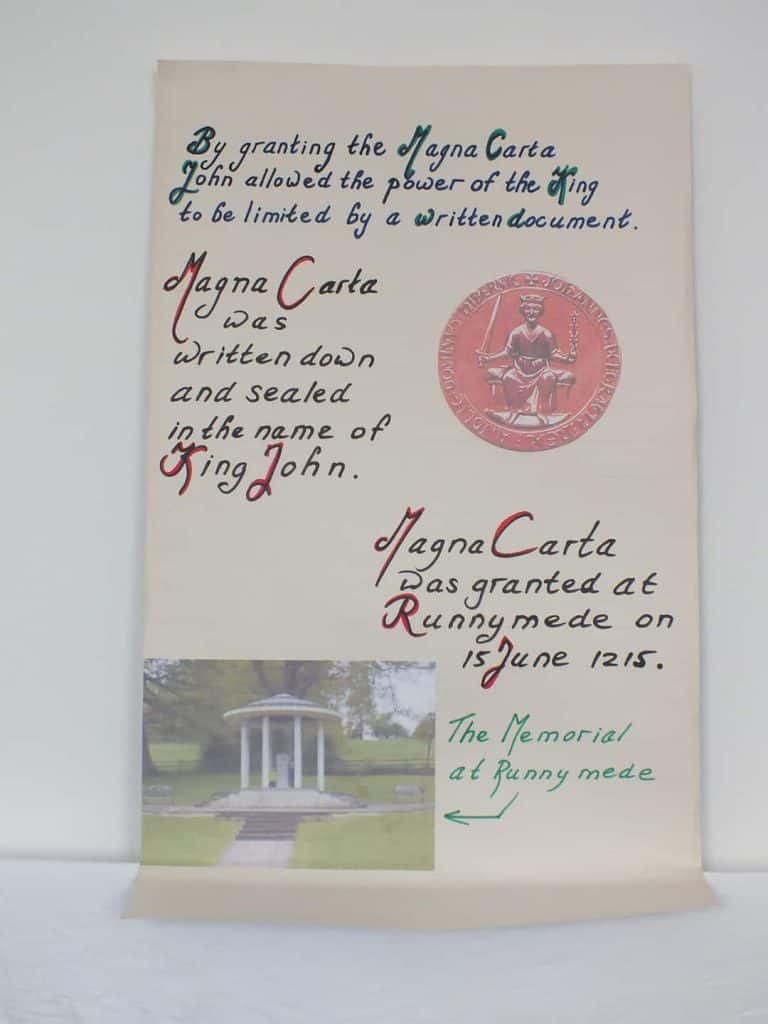 By granting the Magna Carta
John allowed the power of the King
to be limited by a written document.
Magna Carta
was
written down
and sealed
in the name of
King John.
Magna Carta
was granted at
Runnymede on
15 June 1215.
The Memorial
at Runnymede